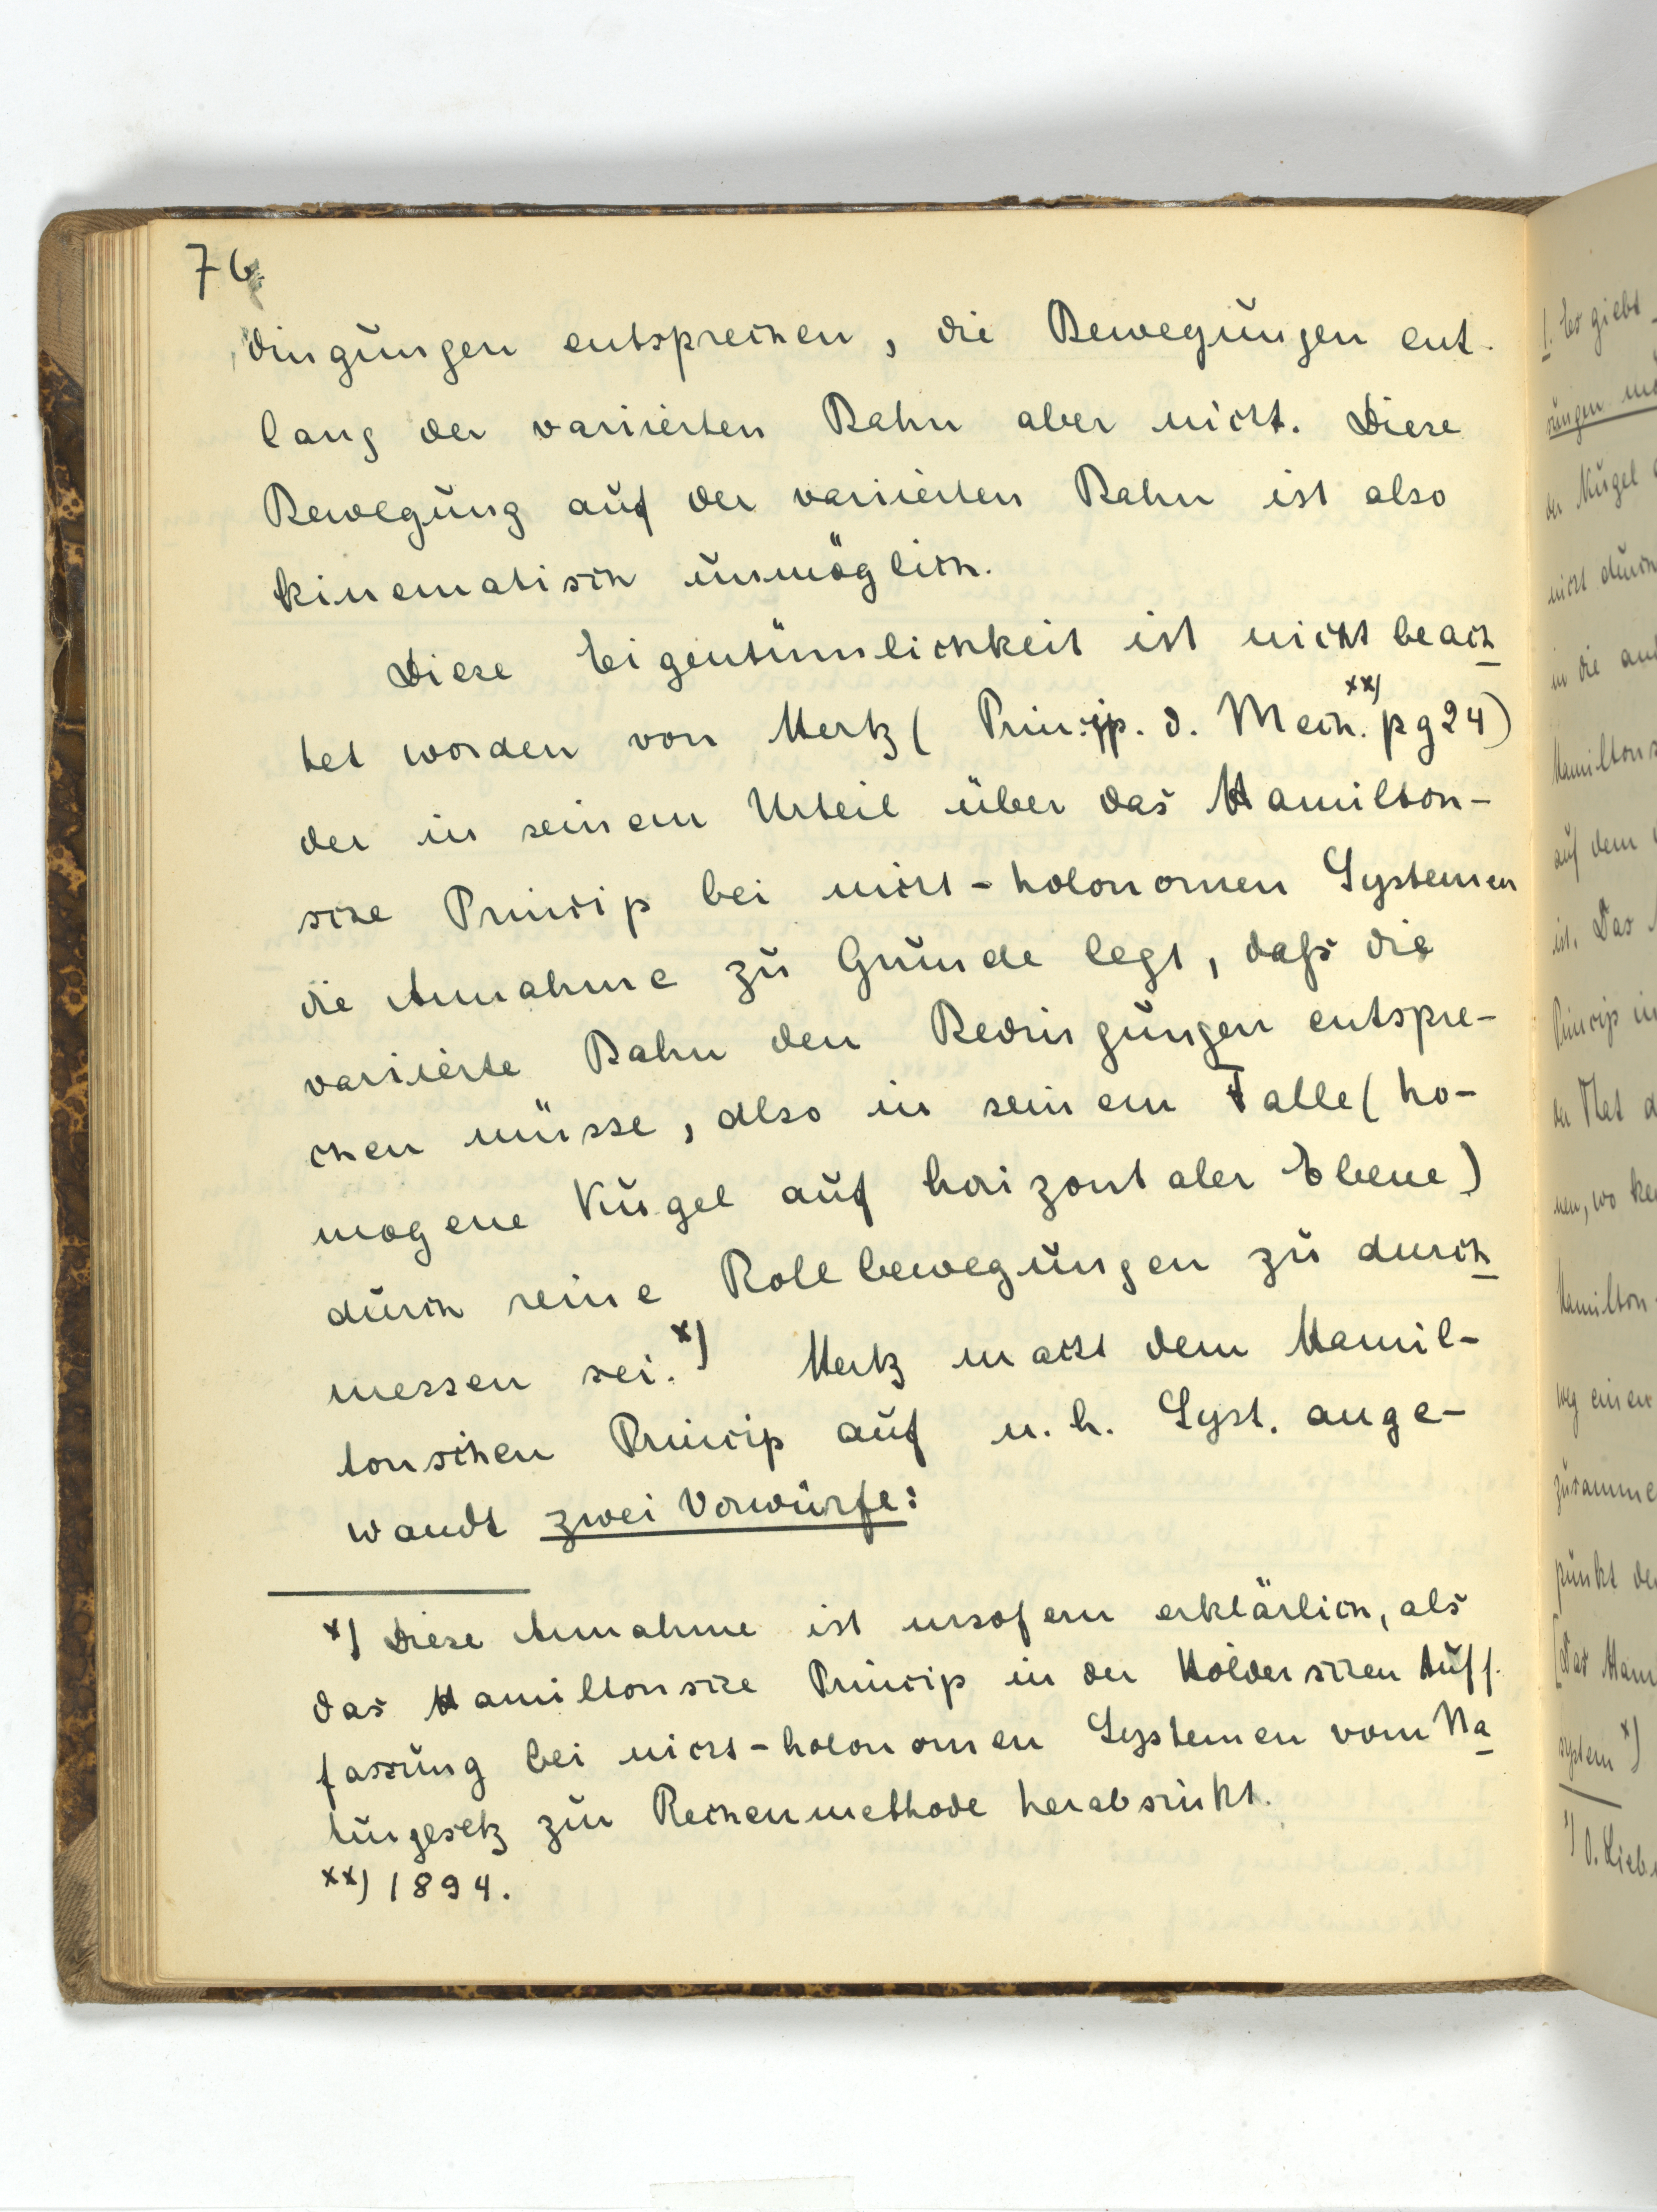 76
dingungen entsprechen, die Bewegungen ent-
lang der variierten Bahn aber nicht. Diese
Bewegung auf der variierten Bahn ist also
kinematisch unmöglich.
Diese Eigentümlichkeit ist nicht beach
tet worden von Hertz ( Princip. d. Mech. xx) pg 24)
der in seinem Urteil über das Hamilton-
sche Princip bei nicht-holonomen Systemen
die Annahme zu Grunde legt, daß die
variierte Bahn den Bedingungen entspre-
chen müsse, also in seinem Falle ( ho-
mogene Kugel auf horizontaler Ebene)
durch reine Rollbewegungen zu durch
messen sei. x) Hertz macht dem Hamil-
tonschen Princip auf n. h. Syst. ange-
wandt zwei Vorwürfe:
x) Diese Annahme ist insofern erklärlich, als
das Hamiltonsche Princip in der Hölderschen Auff-
fassung bei nicht-holonomen Systemen vom Na
turgesetz zur Rechenmethode herabsinkt.
xx) 1894.
1. Es giebt
der Kugel
nicht durch
in die
Hamiltons
auf dem
ist. Das
Princip in
der That
nen, wo
Hamilton-
weg einer
zusamme
punkt de
[Das Ham
system x)
x) O.